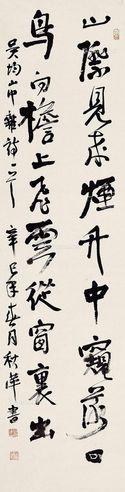 山際見來煙竹中窺落日
鳥向檐上飛雲從窗裏出
吳均山中雜詩一首 辛巳年春月秋萍書